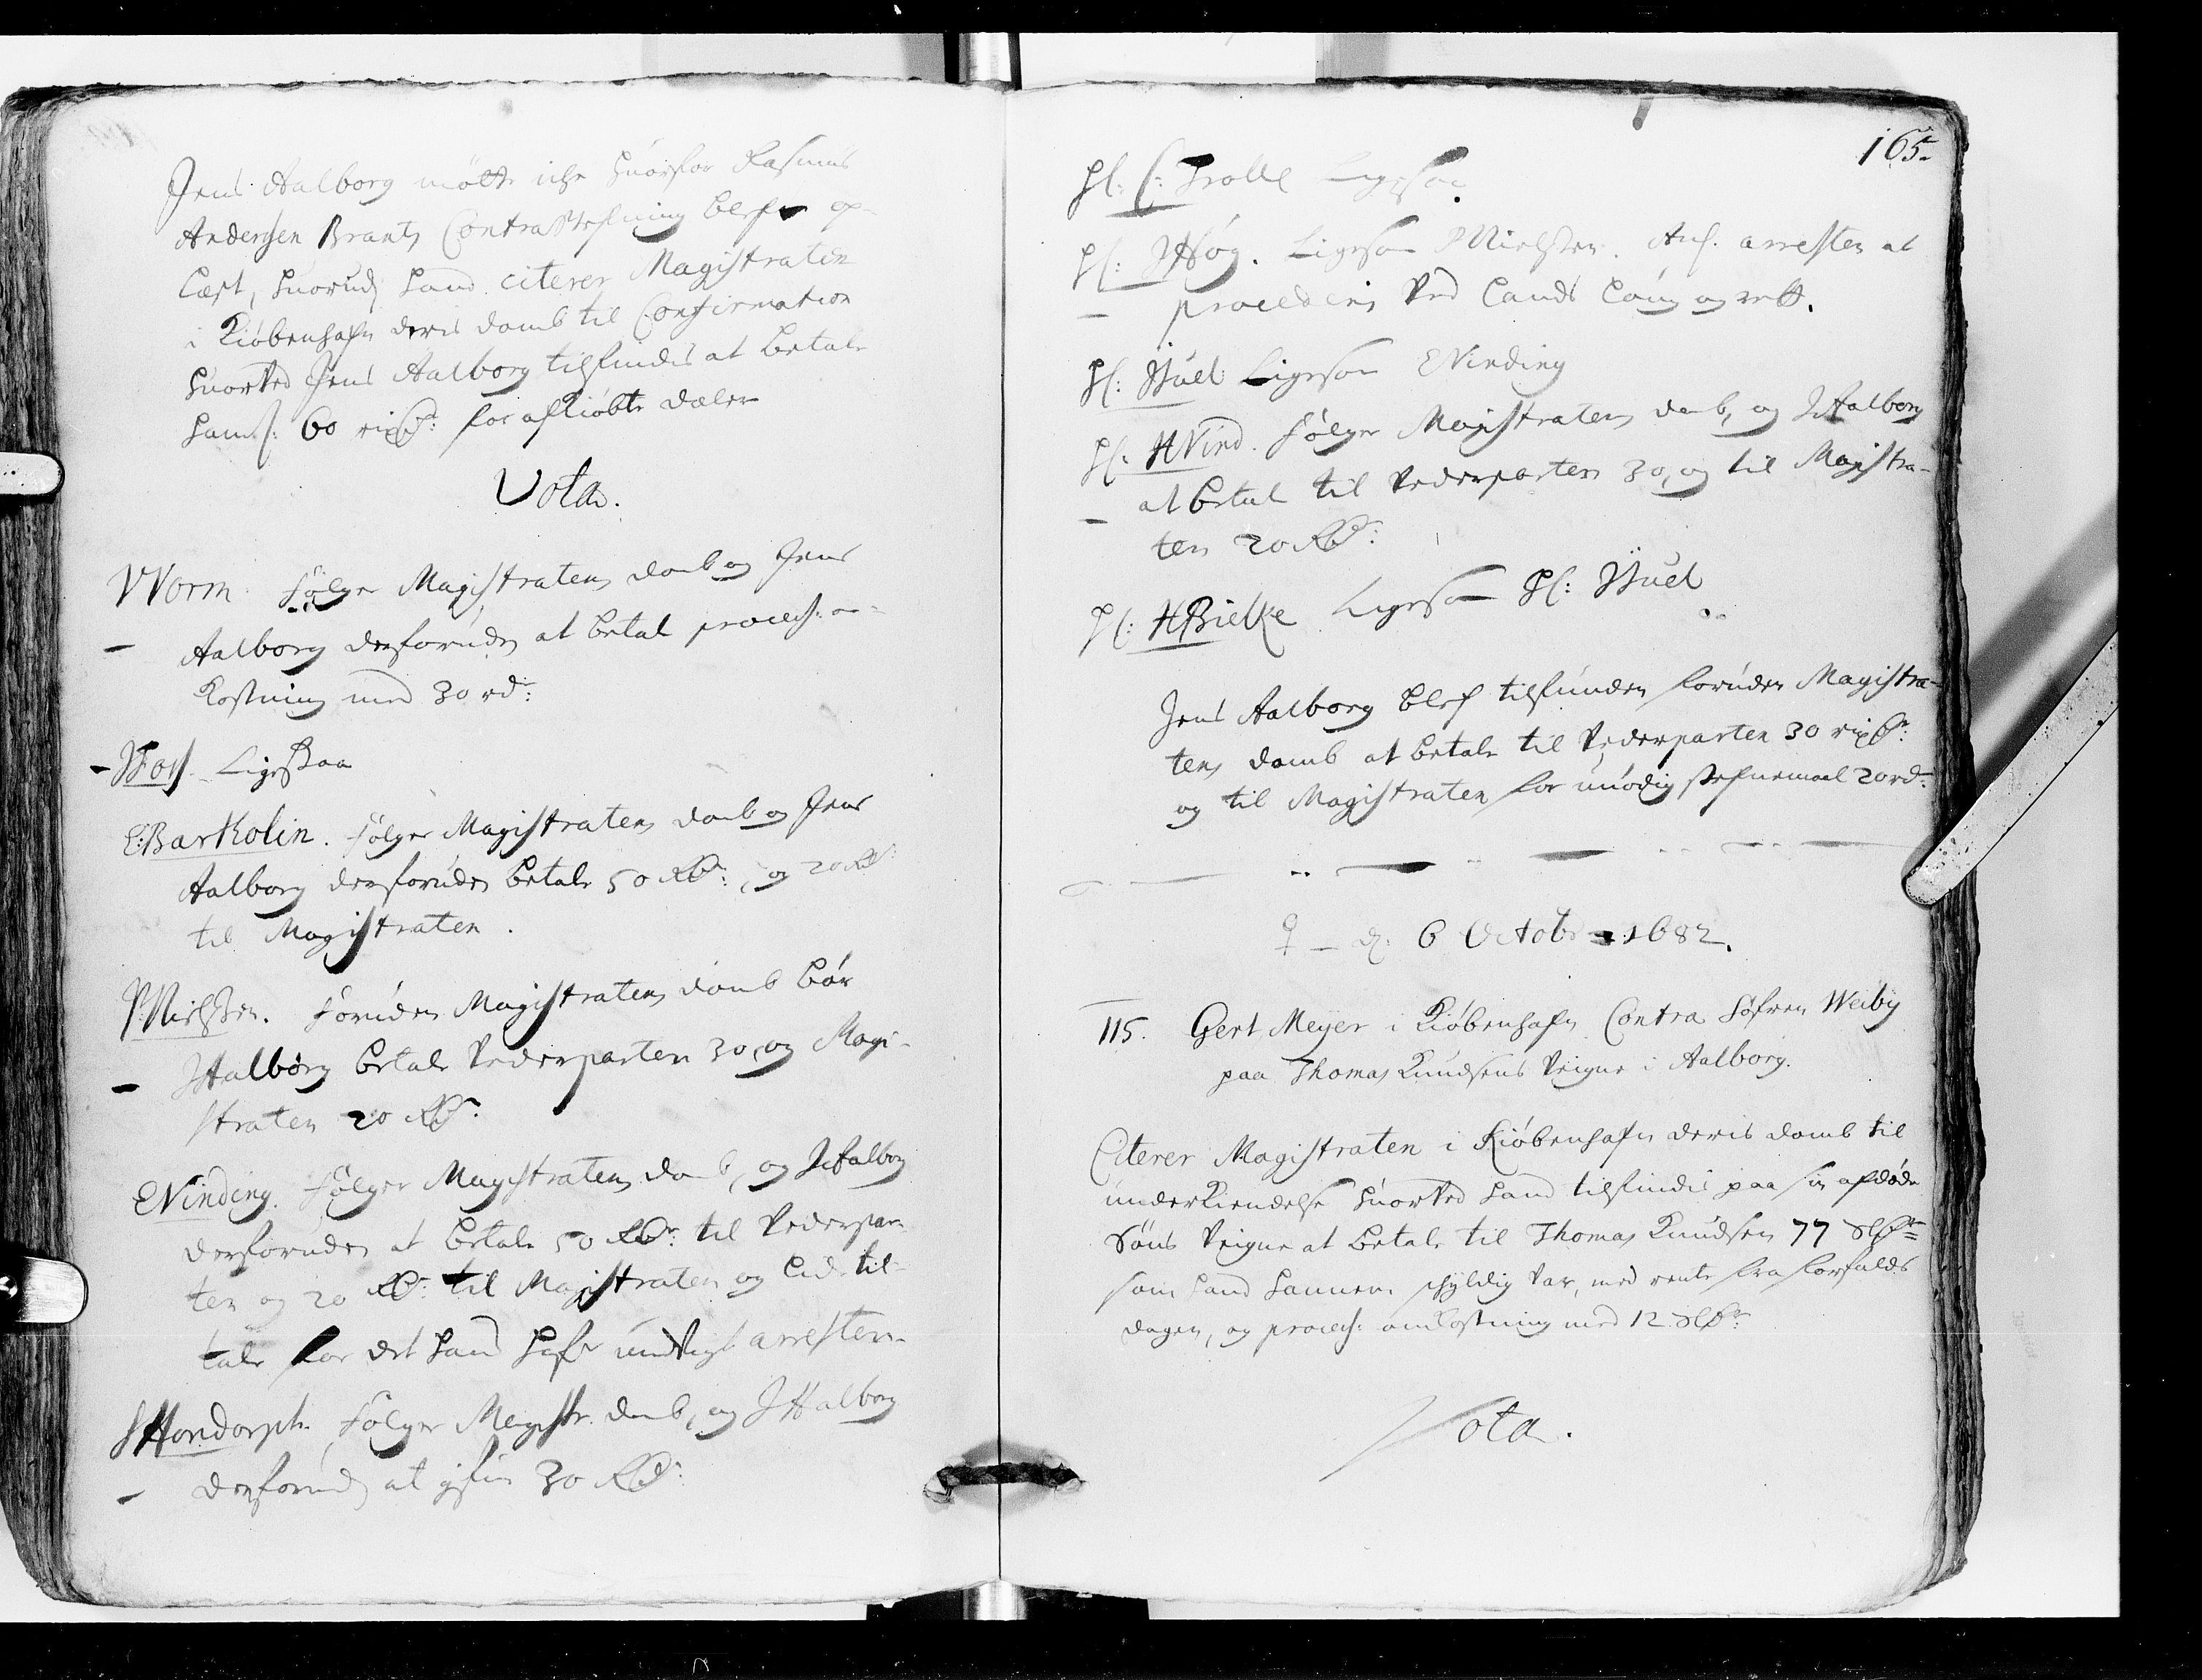 Jens Aalborg mötte iche huorfor Rasmus
Andersen Brants ContraStefning blef op-
læst, huorudj hand citerer Magistraten
i Kiöbenhafn deris domb til Confirmation
huorved Jens Aalborg tilfindis at betale
hans: 60 rixdr: for afkiöbte dæler
Vota.
WWorm. Fölger Magistratens domb og Jens
Aalborg desforuden at betale process: om-
kostning med 30 rd:
Ligesaa
C:Bartholin. Fölger Magistratens domb og Jens
Aalborg desforuden betale 50 Rdr:, og 20 Rd
til Magistraten.
PNielsen. Foruden Magistratens domb bör
JAalborg betale Vederparten 30, og Magi-
straten 20 Rdr:
EVinding. Fölger Magistratens domb, og JAalborg
desforuden at betale 50 Rdr: til Vederpar-
ten og 20 Rdr: til Magistraten og lide til-
tale for det hand hafr arresten.
Hondorph. Fölger Magistr. domb, og JAalborg
desforuden at gifue 30 Rdr:
165.
Hl: Trolle Ligesaa.
Hl: JHög. Ligesom PNielsen. arresten at
ved Lands Lov og rett.
Hl: JJuel Ligesom EVinding
Hl: HVind. Fölger Magistratens domb, og JAalborg
at betale til Vederparten 30, og til Magistra-
ten 20 Rdr:
Hl: HBielke Ligesom Hl: JJuel
Jens Aalborg blef tilfunden foruden Magistra-
tens domb at betale til Vederparten 30 rixdr:
og til Magistraten for unödig stefnemaal 20 rd:
♀ – d: 6 Octobr 1682.
115. Gert Meyer i Kiöbenhafn Contra Söfren Weiby
paa Thomas Knudsens Veigne i Aalborg.
Citerer Magistraten i Kiöbenhafn deris domb til
underkiendelse huorved hand tilfindis paa sin afdöde
Söns Veigne at betale til Thomas Knudsen 77 Sldr:
som hand hannem schyldig var, med rente fra forfalds
dagen, og process: omkostning med 12 Sldr:
Vota.